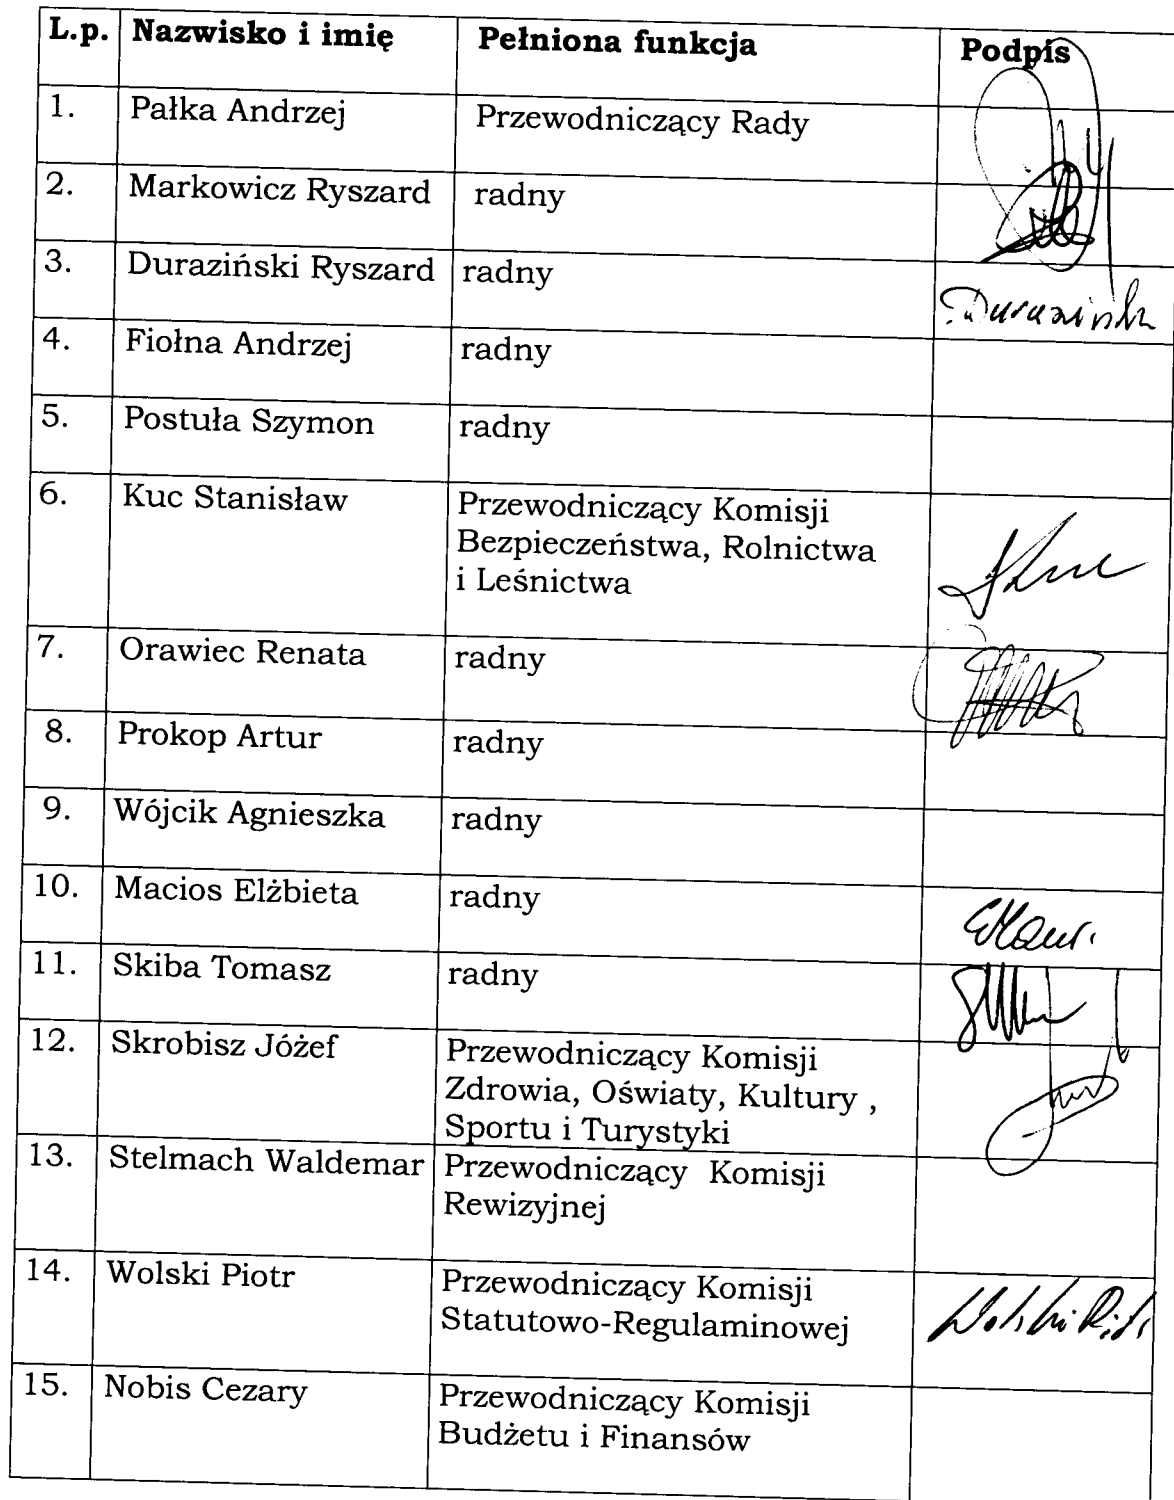 L.p. Nazwisko i imię Pełniona funkcja Podpis
1. Pałka Andrzej Przewodniczący Rady
2. Markowicz Ryszard radny
3. Duraziński Ryszard radny
Duraziński
4. Fiołna Andrzej radny
5. Postuła Szymon radny
6. Kuc Stanisław Przewodniczący Komisji
Bezpieczeństwa, Rolnictwa
i Leśnictwa
7. Orawiec Renata radny
8. Prokop Artur radny
9. Wójcik Agnieszka radny
10. Macios Elżbieta radny
11. Skiba Tomasz radny
12. Skrobisz Jóżef Przewodniczący Komisji
Zdrowia, Oświaty, Kultury ,
Sportu i Turystyki
13. Stelmach Waldemar Przewodniczący Komisji
Rewizyjnej
14. Wolski Piotr Przewodniczący Komisji
Statutowo-Regulaminowej
Wolski Piotr
15. Nobis Cezary Przewodniczący Komisji
Budżetu i Finansów